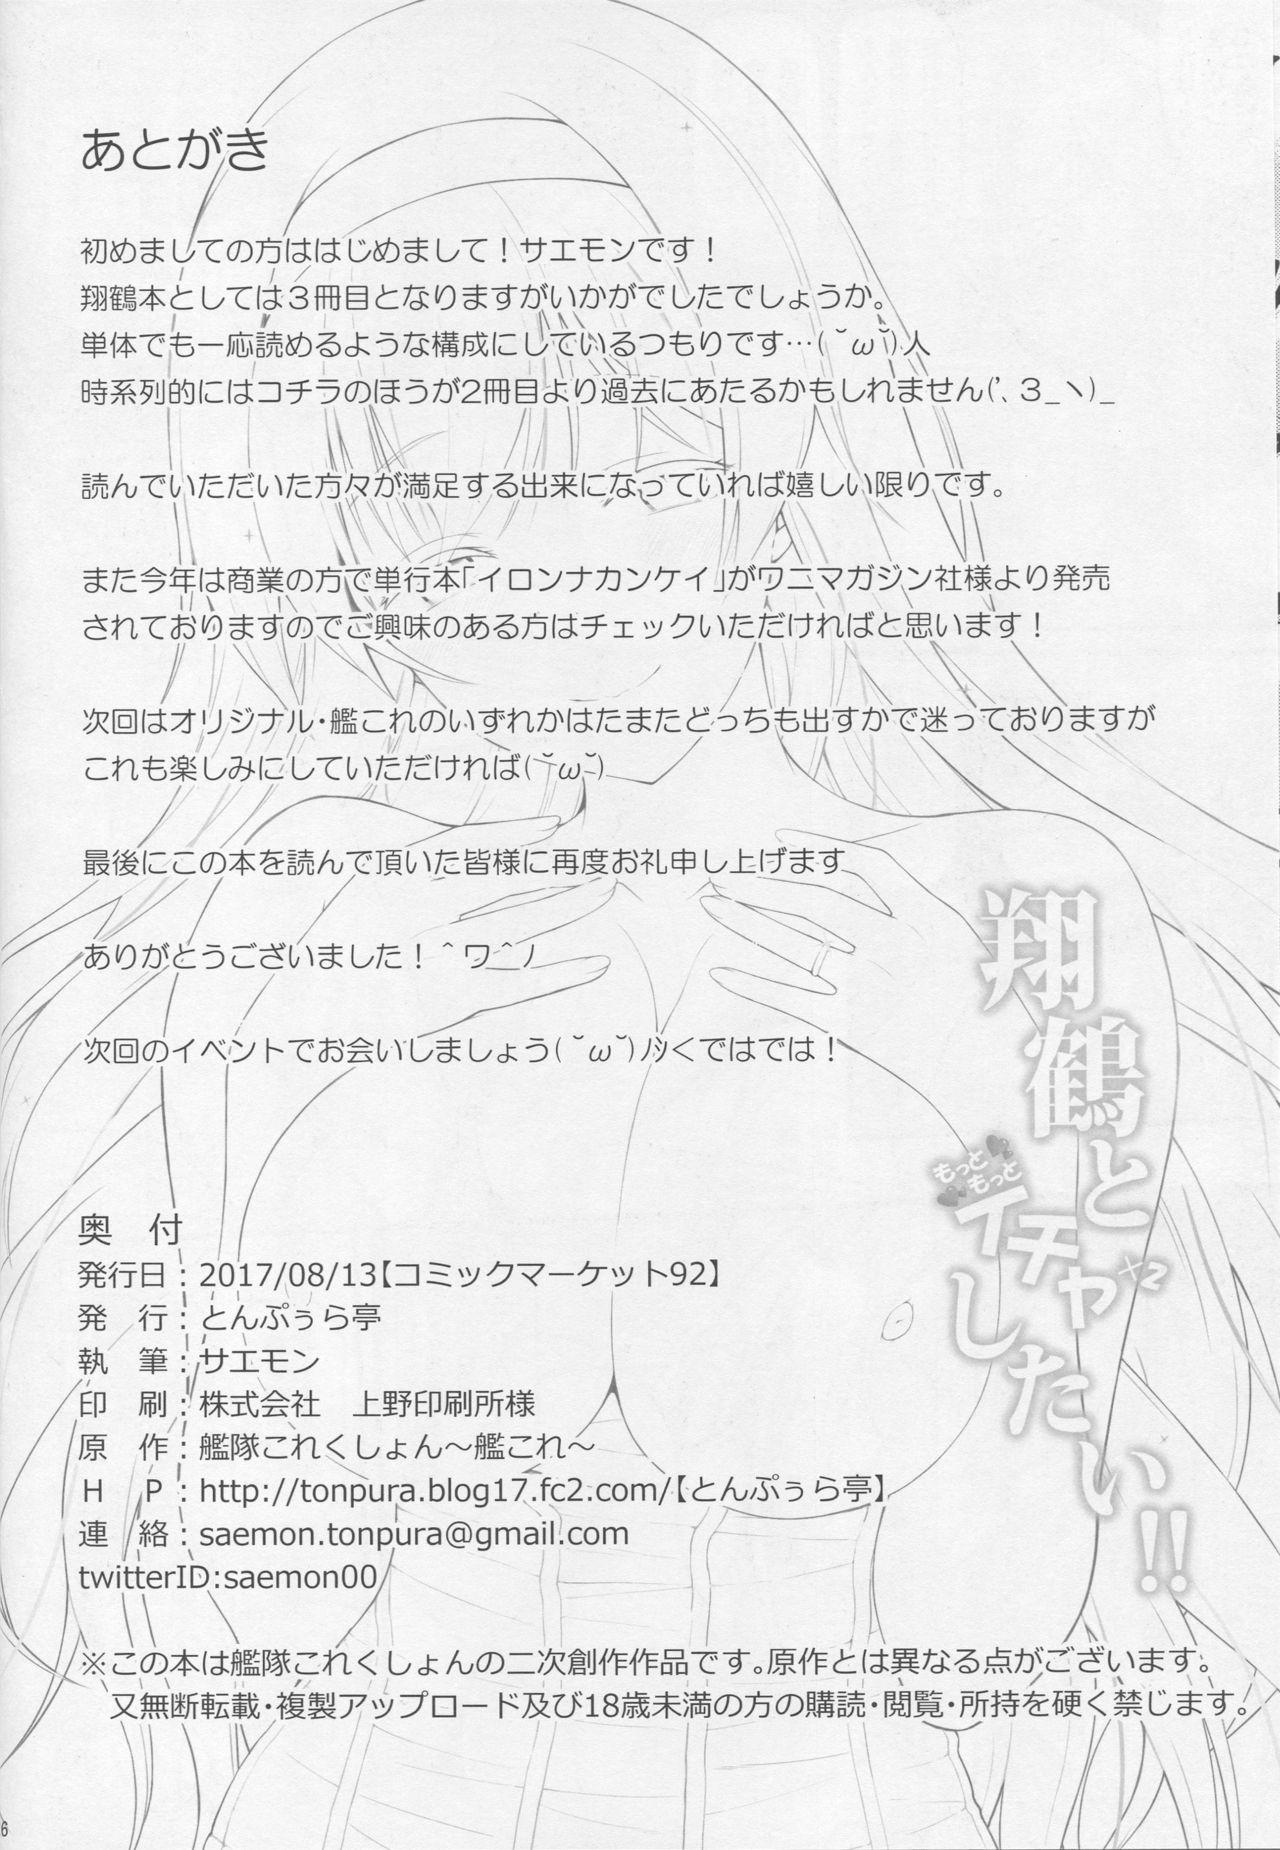 あとがき
初めましての方ははじめまして！サエモンです！
翔鶴本としては３冊目となりますがいかがでしたでしょうか。
単体でも一応読めるような構成にしているつもりです…(˘ω˘)人
時系列的にはコチラのほうが2冊目より過去にあたるかもしれません('､３_ヽ)_
読んでいただいた方々が満足する出来になっていれば嬉しい限りです。
また今年は商業の方で単行本「イロンナカンケイ」がワニマガジン社様より発売
されておりますのでご興味のある方はチェックいただければと思います！
次回はオリジナル・艦これのいずれかはたまたどっちも出すかで迷っておりますが
これも楽しみにしていただければ(˘ω˘)
最後にこの本を読んで頂いた皆様に再度お礼申し上げます
ありがとうございました！＾ワ＾ノ
次回のイベントでお会いしましょう(˘ω˘)ﾉｼくではでは！
翔鶴と
もっと
もっと
イチャ×2
したい!!
奥　付
発行日：2017/08/13【コミックマーケット92】
発　行：とんぷぅら亭
執　筆：サエモン
印　刷：株式会社　上野印刷所様
原　作：艦隊これくしょん～艦これ～
Ｈ　Ｐ：http://tonpura.blog17.fc2.com/【とんぷぅら亭】
連　絡：saemon.tonpura@gmail.com
twitterID:saemon00
※この本は艦隊これくしょんの二次創作作品です。原作とは異なる点がございます。
又無断転載・複製アップロード及び18歳未満の方の購読・閲覧・所持を硬く禁じます。